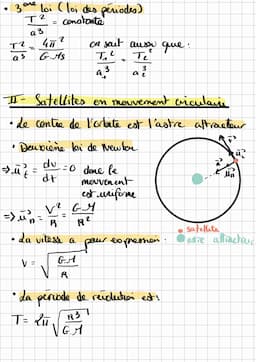 • 3ème loi (loi des périodes)
T²/a³ = constante
T²/a³ = 4π²/G.Ms
on sait aussi que :
T₁²/a₁³ = T₂²/a₂³
II - Satellites en mouvement circulaire
• Le centre de l'orbite est l'astre attracteur
• Deuxième loi de Newton
=> u⃗t = dv/dt = 0 donc le
mouvement
est uniforme
=> u⃗n = V²/R = G.M/R²
• satellite
• astre attracteur
• La vitesse a pour expression :
V = √(G.M/R)
• La période de révolution est :
T = 2π √(R³/G.M)